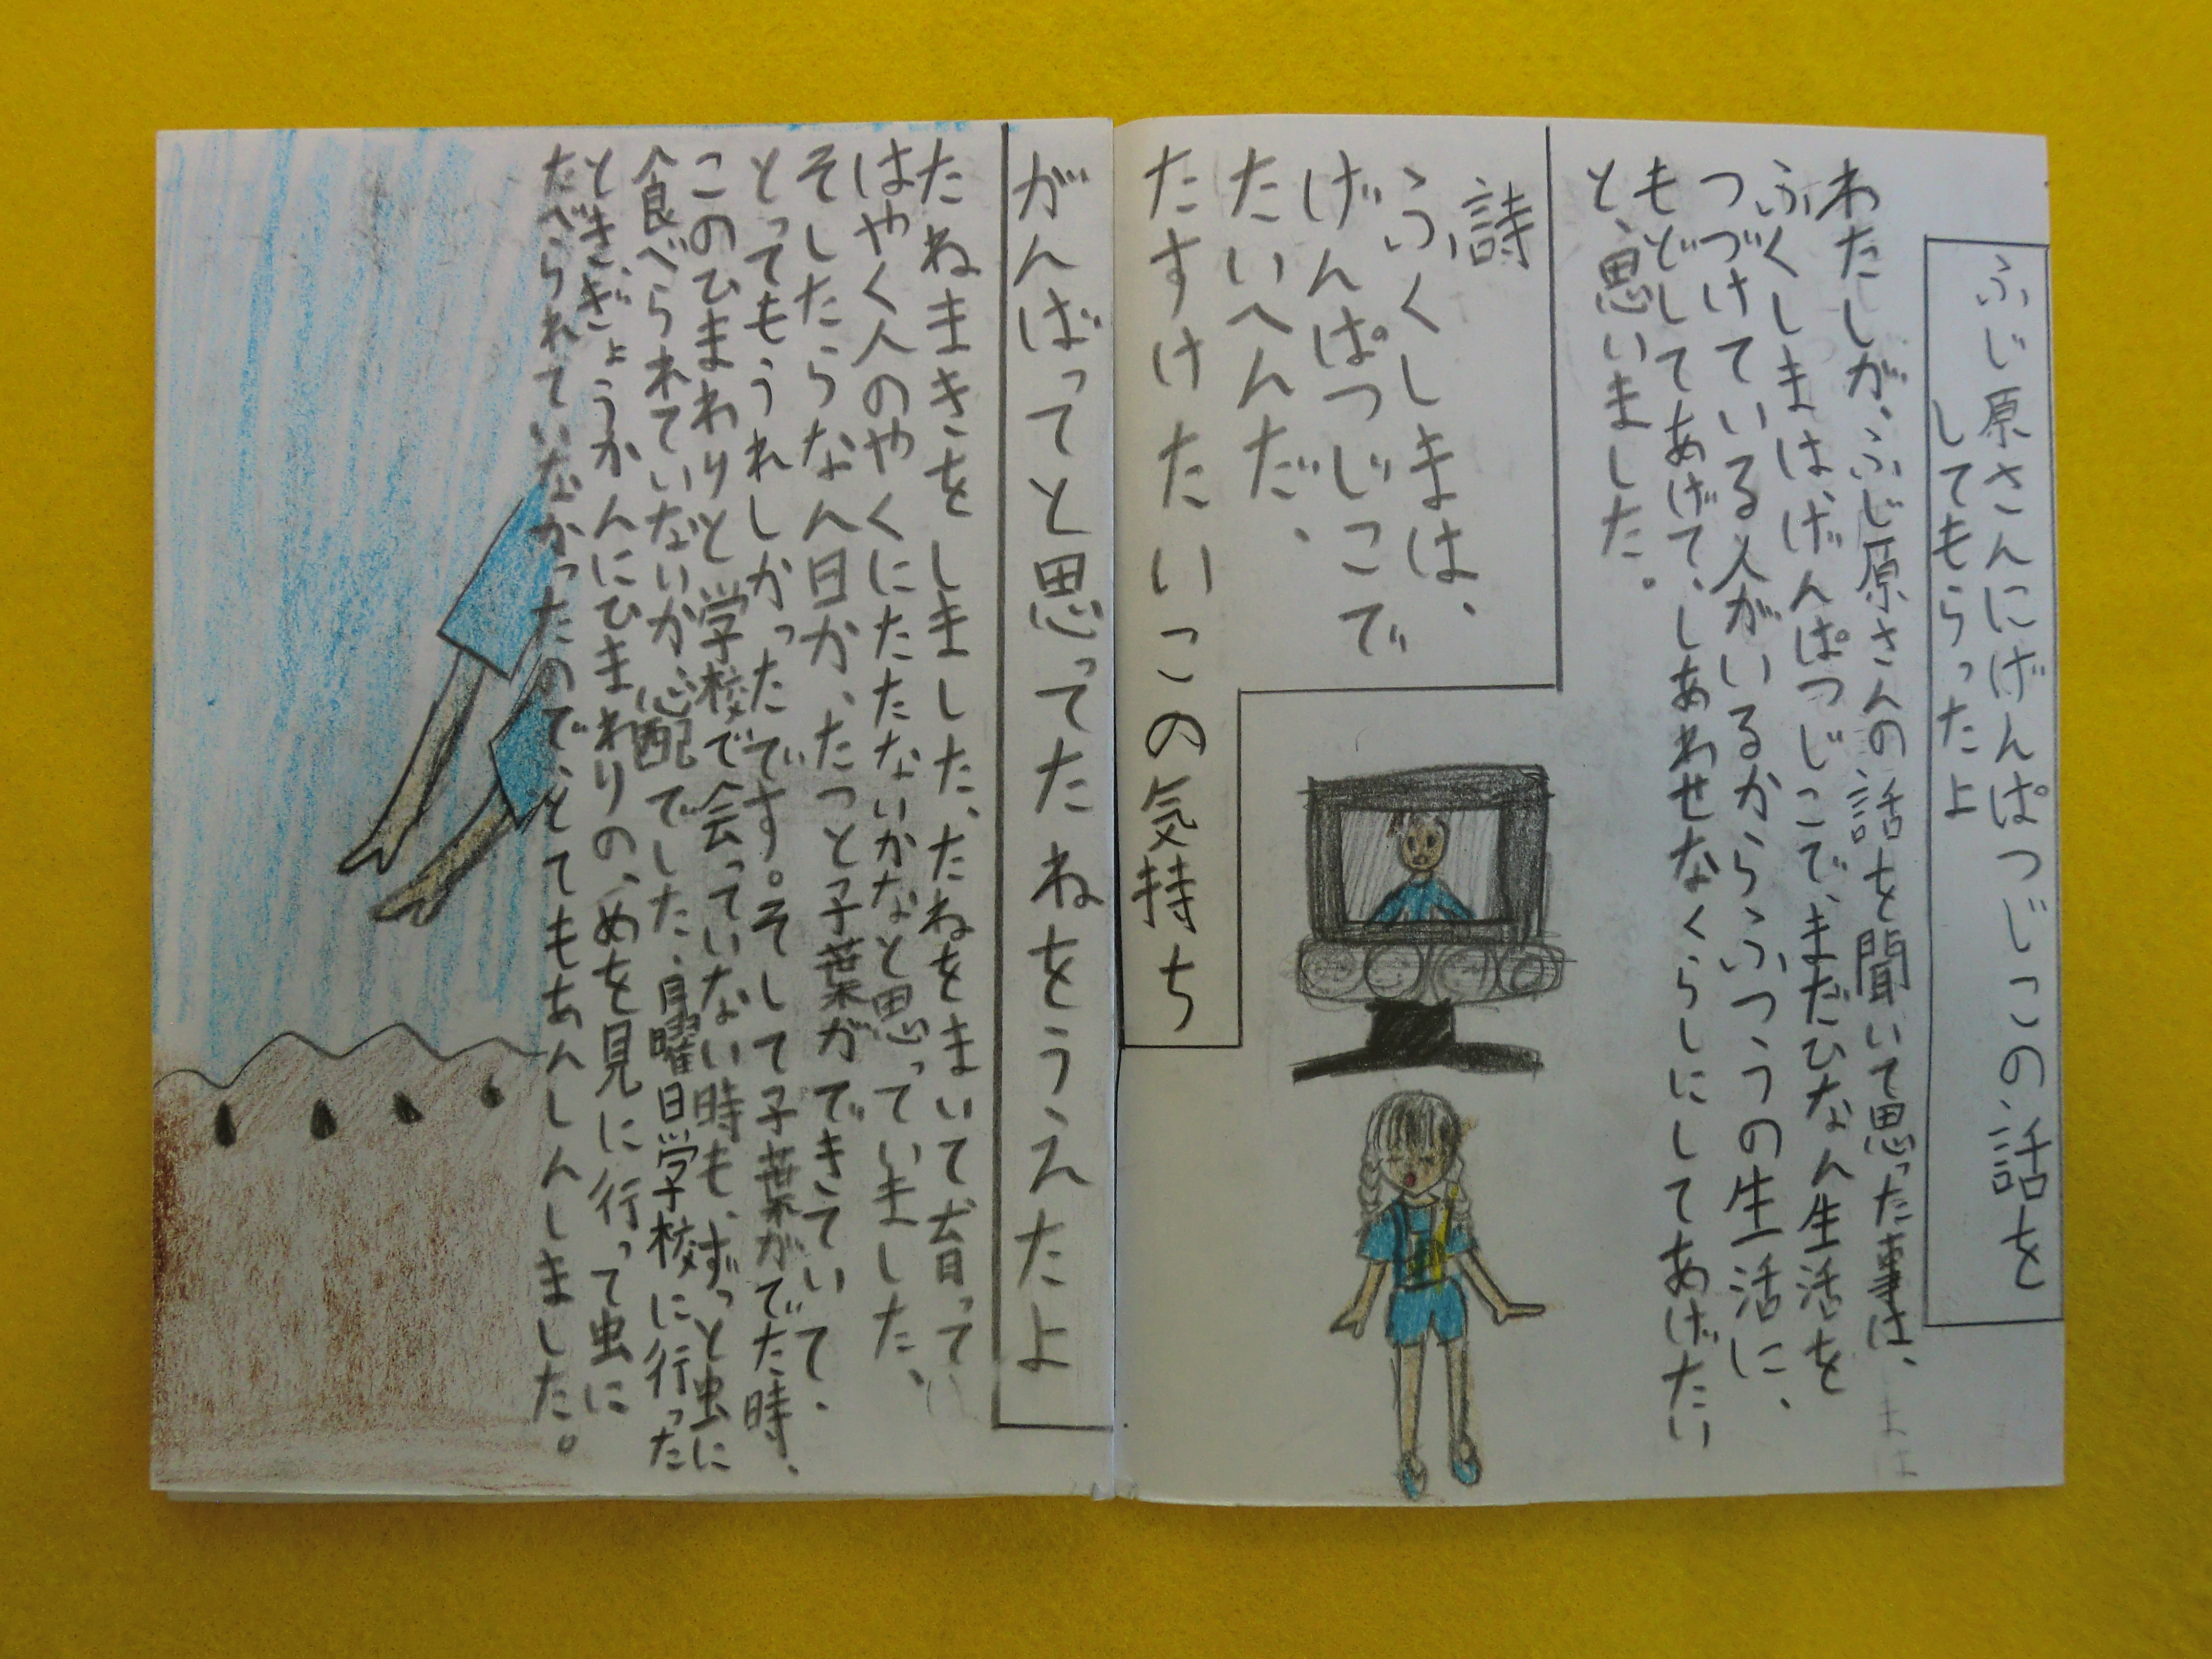 ふじ原さんにげんぱつじこの話を
してもらったよ
わたしが、ふじ原さんの話を聞いて思った事は、
ふくしまは、げんぱつじこで、まだひなん生活を
つづけている人がいるからふつうの生活に、
もどしてあげて、しあわせなくらしにしてあげたい
と、思いました。
詩
ふくしまは、
げんぱつじこで
たいへんだ、
たすけたいこの気持ち
がんばってと思ってたねをうえたよ
たねまきをしました、たねをまいて育って
はやく人のやくにたたないかなと思っていました、
そしたらなん日か、たつと子葉ができていて、
とってもうれしかったです。そして子葉がでた時、
このひまわりと学校で会っていない時も、ずっと虫に
食べられていないか心配でした、日曜日学校に行った
ときぎょうかんにひまわりの、めを見に行って虫に
たべられていなかったので、とてもあんしんしました。